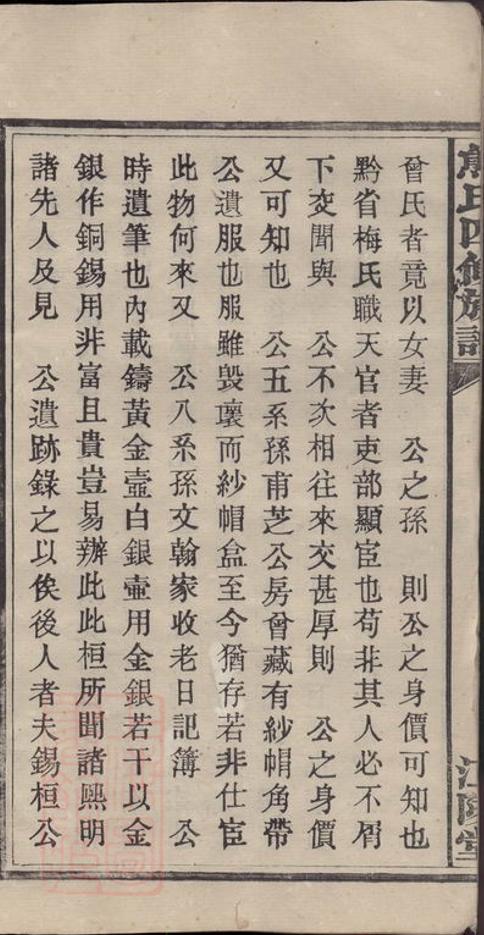 曾氏者竟以女妻　公之孫　則公之身價可知也
黔省梅氏職天官者吏部顯宦也苟非其人必不屑
下交聞與　公不次相往來交甚厚則　公之身價
又可知也　公五系孫甫芝公房曾藏有紗帽角帶
公遺服也服雖毀壞而紗帽盒至今猶存若非仕宦
此物何來又　公八系孫文翰家收老日記簿　公
時遺筆也內載鑄黃金壺白銀壷用金銀若干以金
銀作銅錫用非富且貴豈易辦此此桓所聞諸熙明
諸先人及見　公遺跡錄之以俟後人者夫錫桓公
氏四修族譜
江陵堂